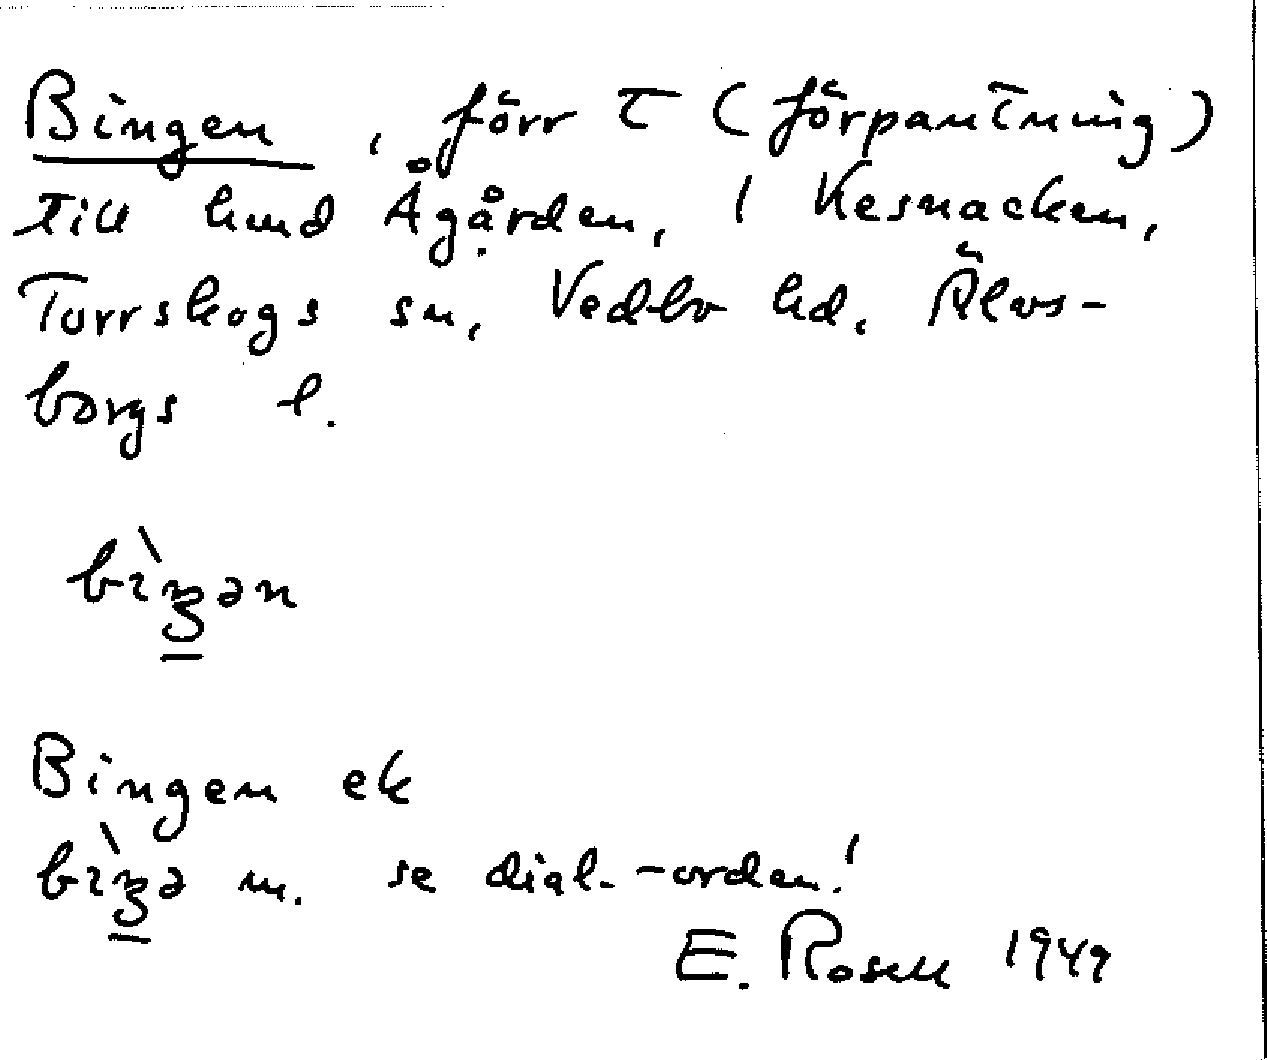 Bingen, förr τ (förpantning)
till hmd Ågården, i Kesnacken,
Torrskogs sn, Vedbo hd. Älvs-
borgs l.
bìŋən
Bingen ek
bìŋə m. se dial.-orden!
E. Rosell 1949